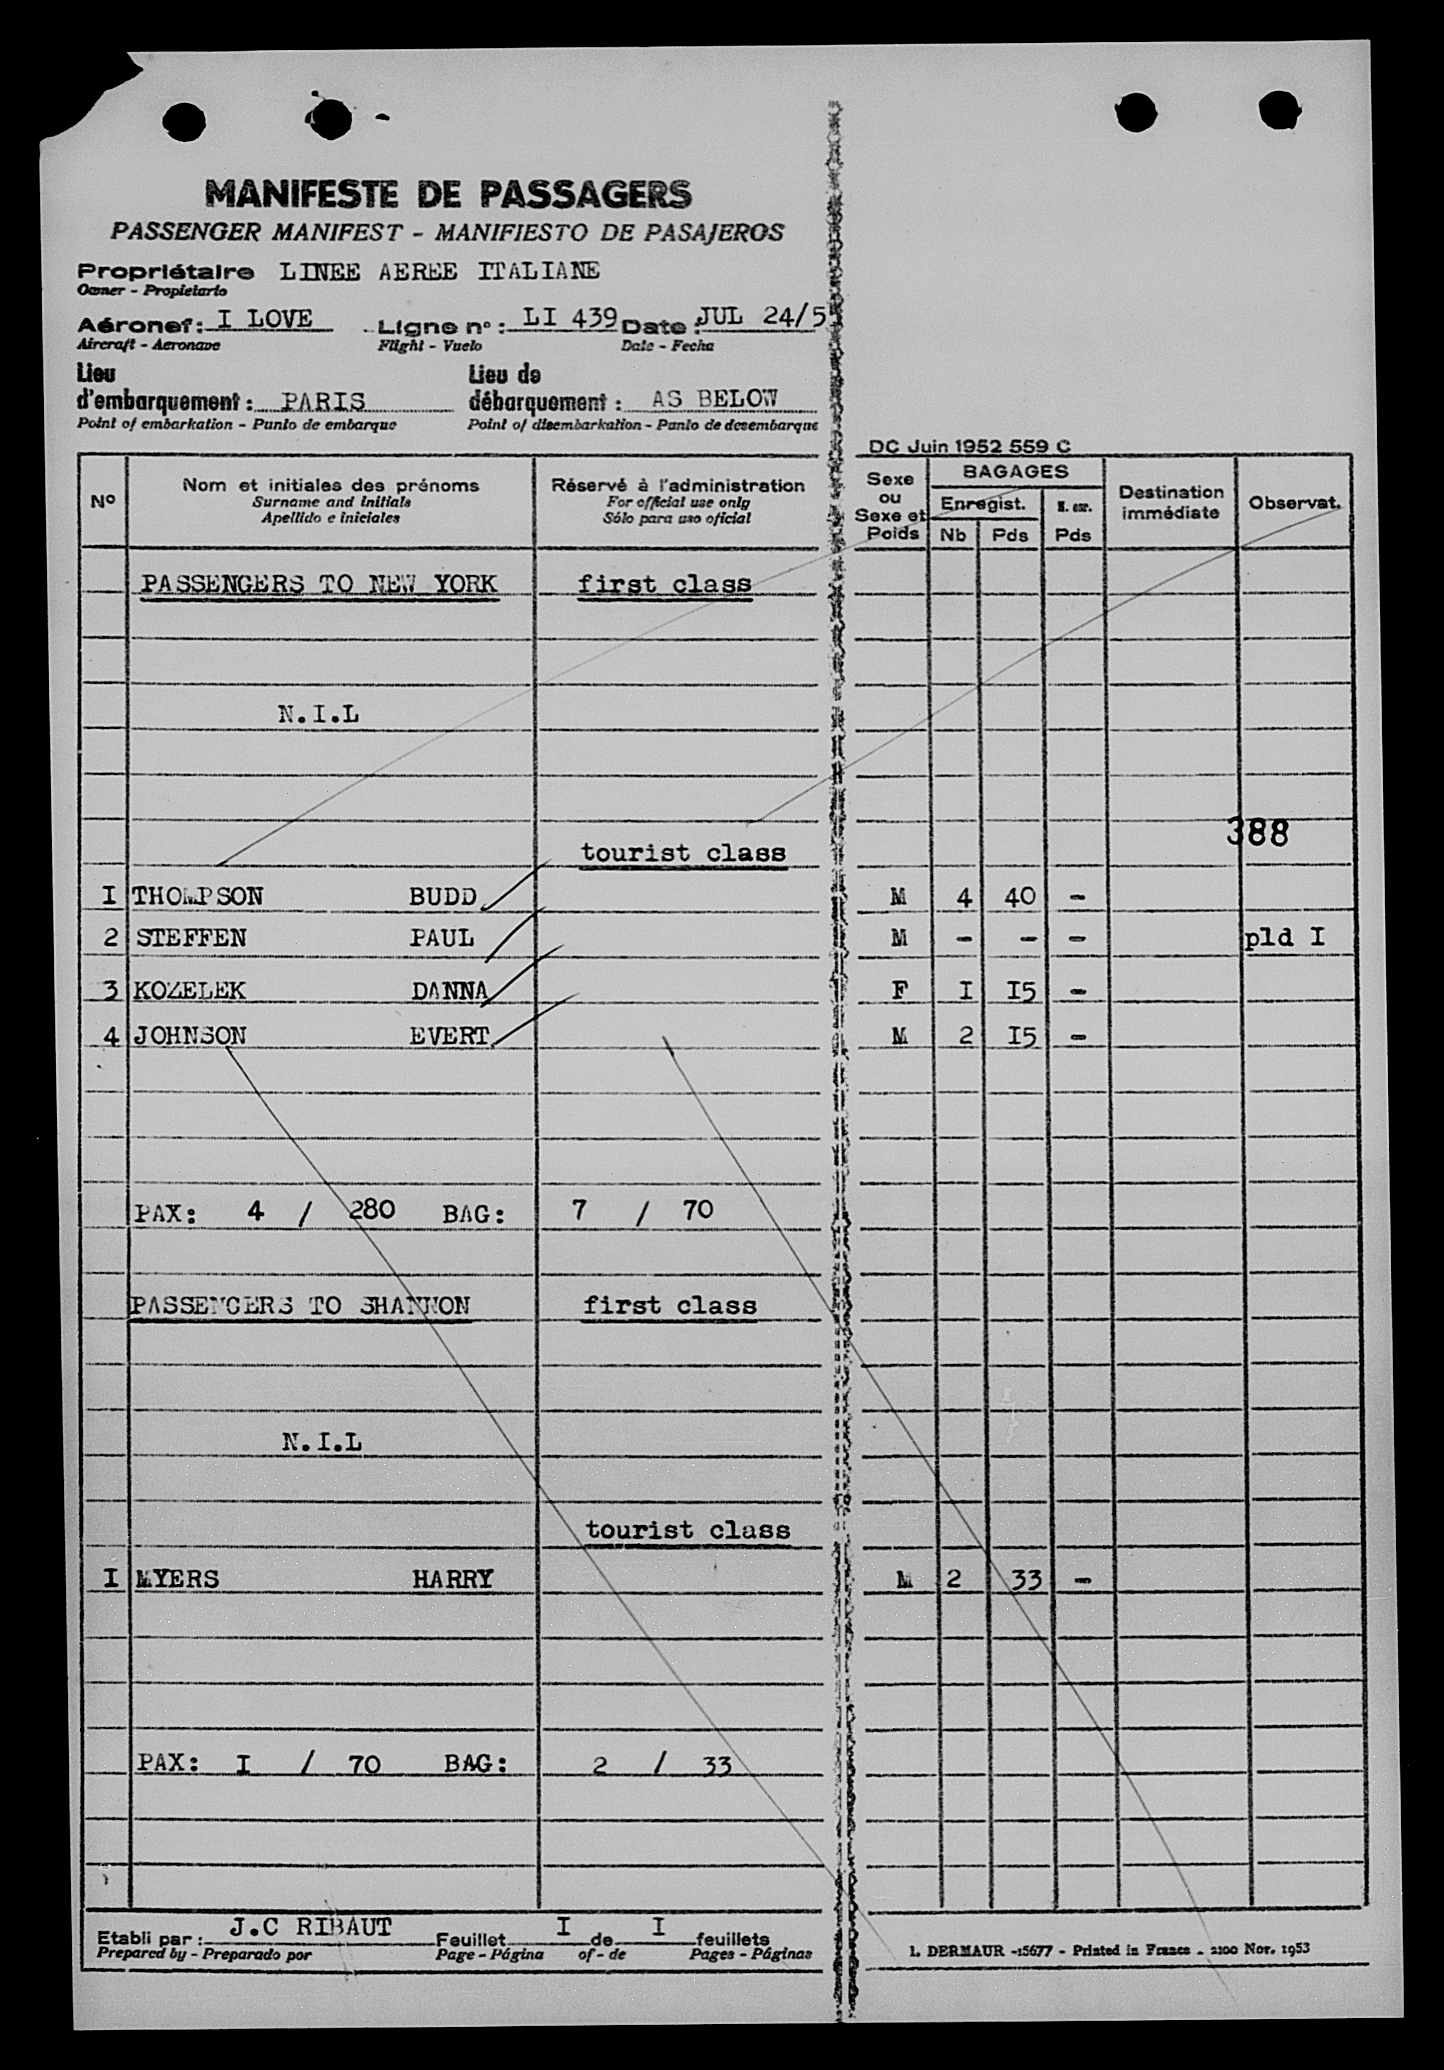 MANIFESTE DE PASSAGERS
PASSENGER MANIFEST - MANIFIESTO DE PASAJEROS
Propriétaire LINEE AEREE ITALIANE
Owner - Propietario
Aéronef: I LOVE Ligne n°: LI 439 Date: JUL 24/5
Aircraft - Aeronave Flight - Vuelo Date - Fecha
Lieu d'embarquement: PARIS Lieu de débarquement: AS BELOW
Point of embarkation - Punto de embarque Point of disembarkation - Punto de desembarque
DC Juin 1952 559 C
N° Nom et initiales des prénoms Réservé à l'administration Sexe ou Sexe et Poids BAGAGES Destination immédiate Observat.
Surname and initials For official use only Enregist. N. enr.
Apellido e iniciales Sólo para uso oficial Nb Pds Pds
PASSENGERS TO NEW YORK first class
N.I.L
388
tourist class
I THOMPSON BUDD M 4 40 -
2 STEFFEN PAUL M - - - pld I
3 KOZELEK DANNA F I I5 -
4 JOHNSON EVERT M 2 I5 -
PAX: 4 / 280 BAG: 7 / 70
PASSENGERS TO SHANNON first class
N.I.L
tourist class
I MYERS HARRY M 2 33 -
PAX: I / 70 BAG: 2 / 33
Etabli par: J.C RIBAUT Feuillet I de I feuillets
Prepared by - Preparado por Page - Página of - de Pages - Páginas
L. DERMAUR -15677 - Printed in France - 2100 Nov. 1953